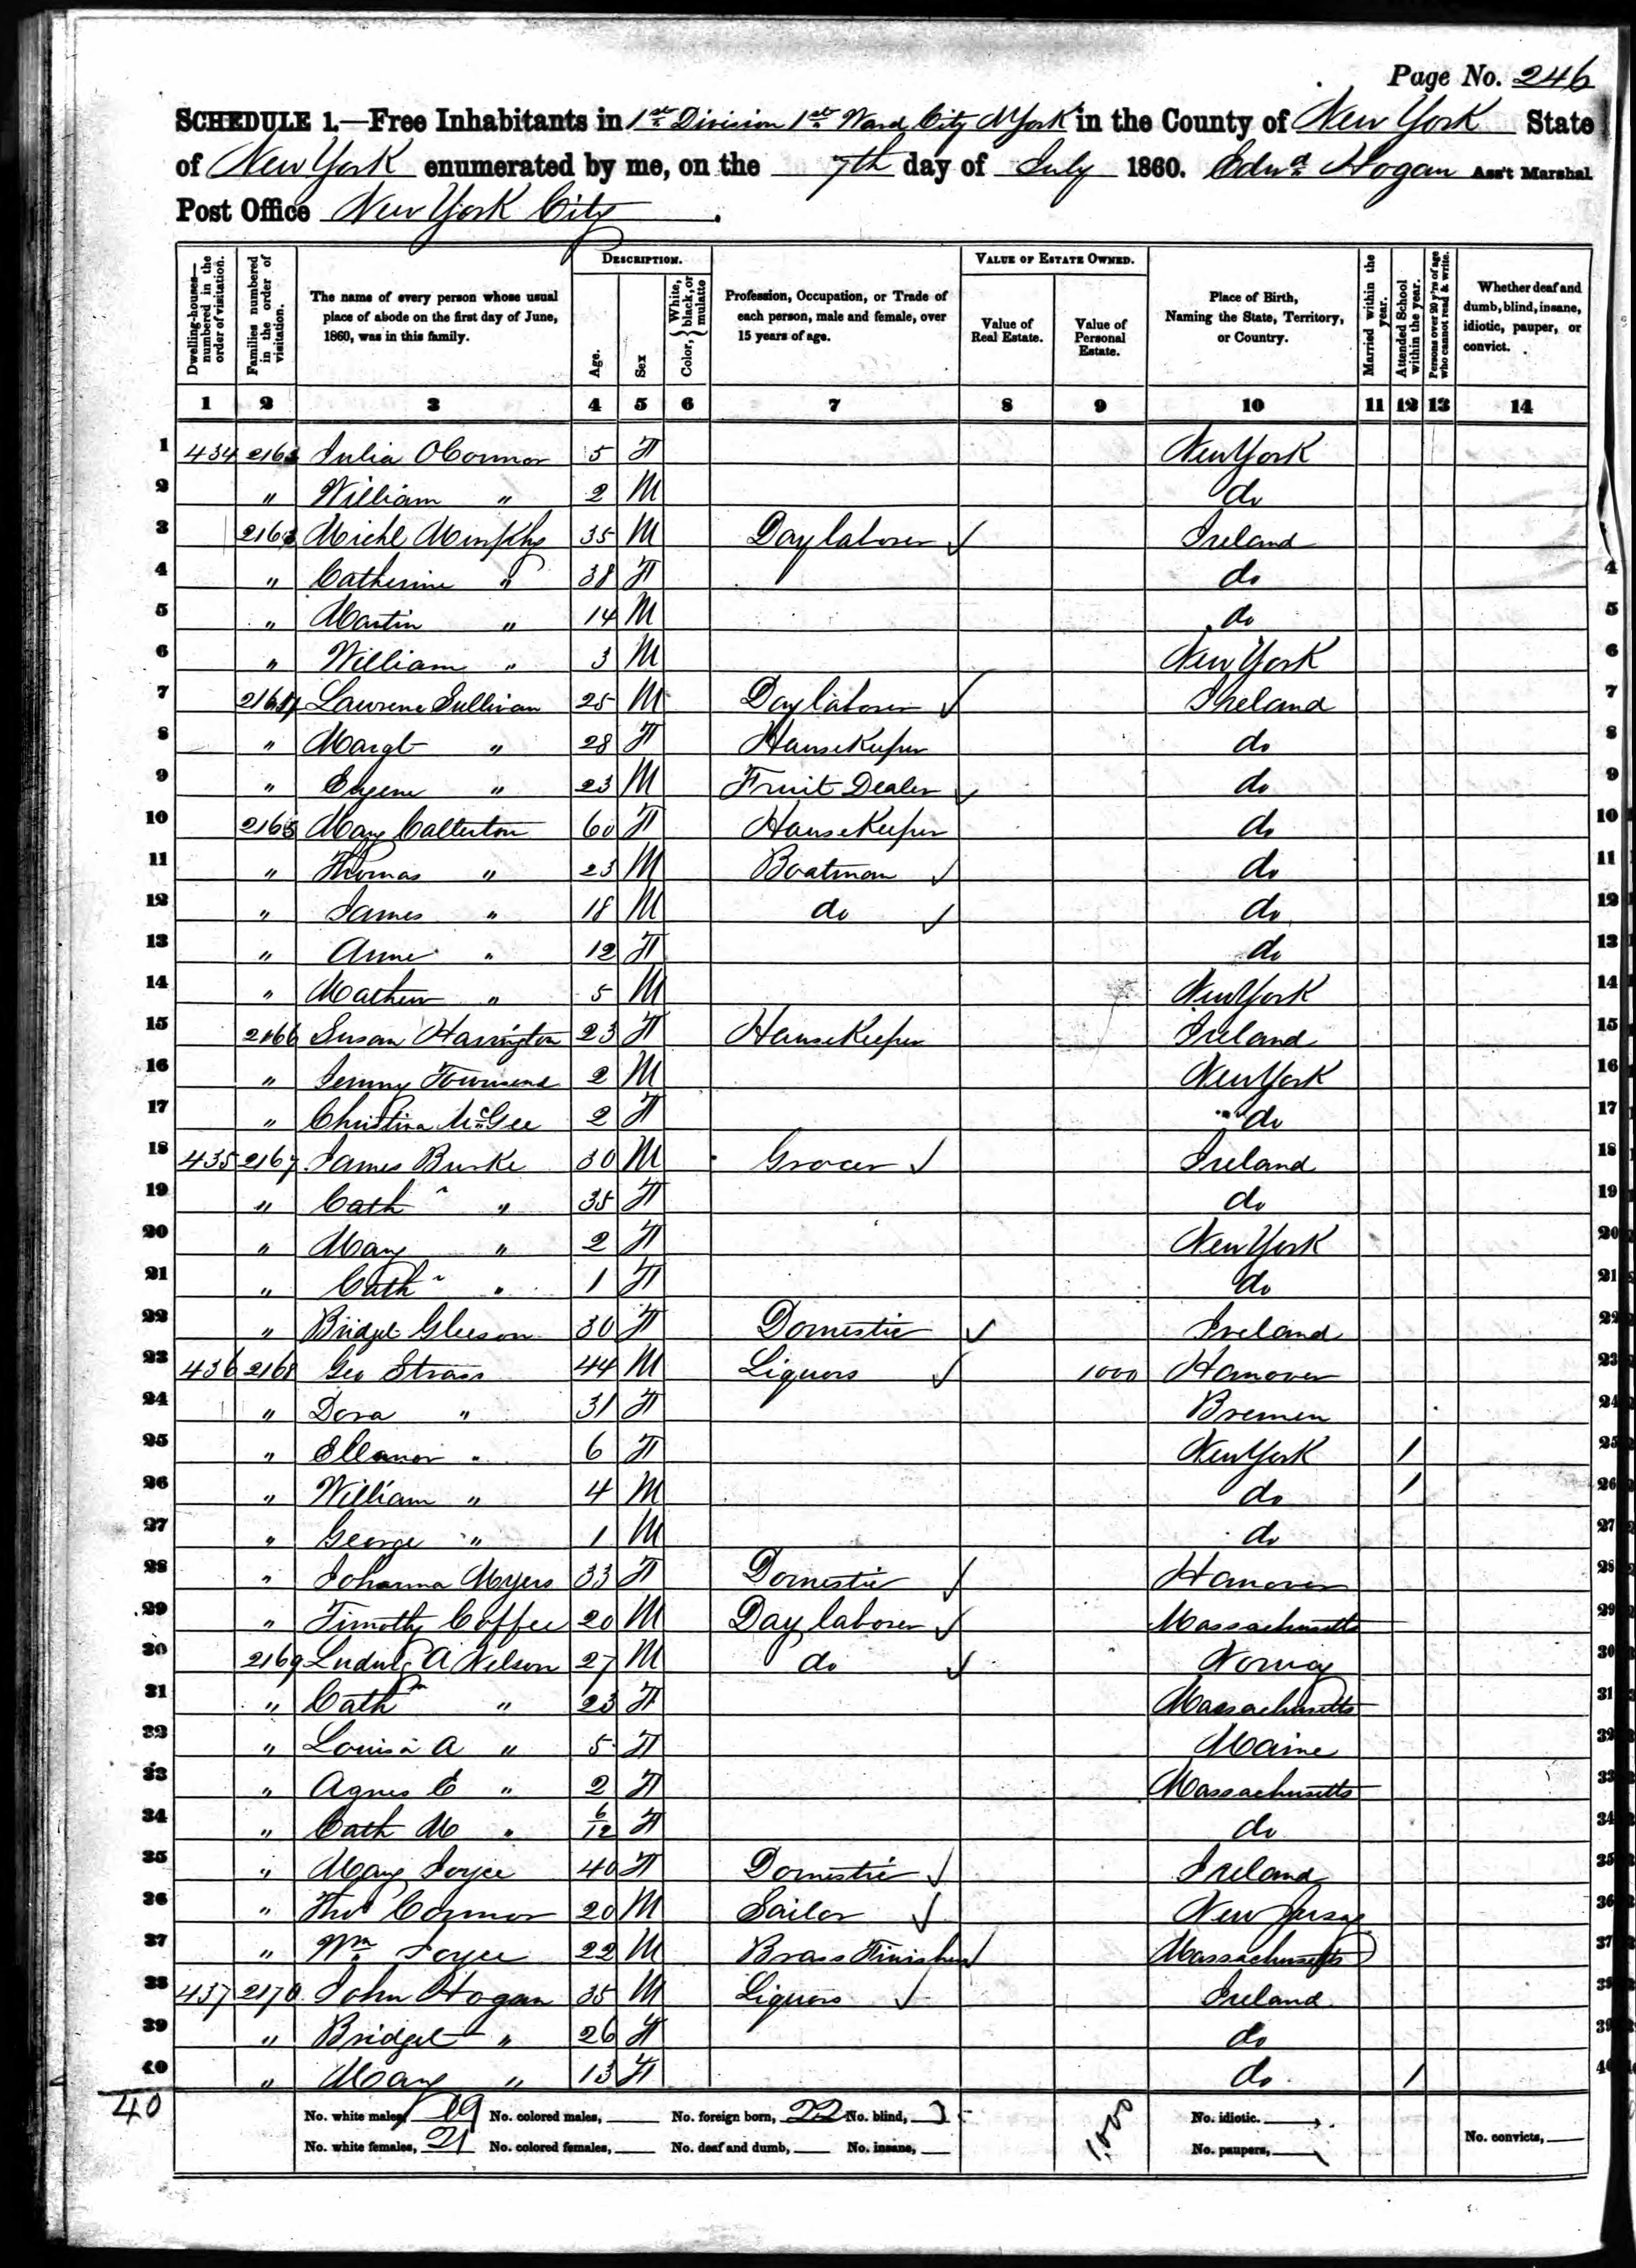 Page No. 246
SCHEDULE 1.—Free Inhabitants in 1st Division 1st Ward City N York in the County of New York State
of New York enumerated by me, on the 7th day of July 1860. Edwd Hogan Ass't Marshal
Post Office New York City.
Dwelling-houses—numbered in the order of visitation.
Families numbered in the order of visitation.
The name of every person whose usual place of abode on the first day of June, 1860, was in this family.
DESCRIPTION.
Age.
Sex
Color, { White, black, or mulatto
Profession, Occupation, or Trade of each person, male and female, over 15 years of age.
VALUE OF ESTATE OWNED.
Value of Real Estate.
Value of Personal Estate.
Place of Birth, Naming the State, Territory, or Country.
Married within the year.
Attended School within the year.
Persons over 20 y'rs of age who cannot read & write.
Whether deaf and dumb, blind, insane, idiotic, pauper, or convict.
1 2 3 4 5 6 7 8 9 10 11 12 13 14
1 434 2162 Julia OConnor 5 F New York
2 " William " 2 M do
3 2163 Michl Murphy 35 M Day laborer Ireland
4 " Catherine " 38 F do 4
5 " Martin " 14 M do 5
6 " William " 3 M New York 6
7 2164 Lawrence Sullivan 25 M Day laborer Ireland 7
8 " Margt " 28 F HouseKeeper do 8
9 " Eugene " 23 M Fruit Dealer do 9
10 2165 Mary 60 F HouseKeeper do 10
11 " Thomas " 23 M Boatman do 11
12 " James " 18 M do do 12
13 " Anne " 12 F do 13
14 " Mathew " 5 M New York 14
15 2166 Susan Harrington 23 F HouseKeeper Ireland 15
16 " Townsend 2 M New York 16
17 " Christina McGee 2 F do 17
18 435 2167 James Burke 30 M Grocer Ireland 18
19 " Cath " 35 F do 19
20 " Mary " 2 F New York 20
21 " Cath " 1 F do 21
22 " Bridget Gleeson 30 F Domestic Ireland 22
23 436 2168 Geo Strass 44 M Liquors 1000 Hanover 23
24 " Dora " 31 F Bremen 24
25 " Elleanor " 6 F New York 1 25
26 " William " 4 M do 1 26
27 " George " 1 M do 27
28 " Johanna Myers 33 F Domestic Hanover 28
29 " Timothy Coffee 20 M Day laborer Massachusetts 29
30 2169 Ludwig A Nelson 27 M do Norway 30
31 " Cathn " 23 F Massachusetts 31
32 " Louisa A " 5 F Maine 32
33 " Agnes E " 2 F Massachusetts 33
34 " Cath M " 6/12 F do 34
35 " Mary Joyce 40 F Domestic Ireland 35
36 " Thos Connor 20 M Sailor New Jersey 36
37 " Wm Joyce 22 M Brass Finisher Massachusetts 37
38 437 2170 John Hogan 35 M Liquors Ireland 38
39 " Bridget " 26 F do 39
40 " Mary " 13 F do 1 40
40
No. white males, 19 No. colored males, No. foreign born, 22 No. blind, 1000 No. idiotic.
No. white females, 21 No. colored females, No. deaf and dumb, No. insane, No. paupers, No. convicts,